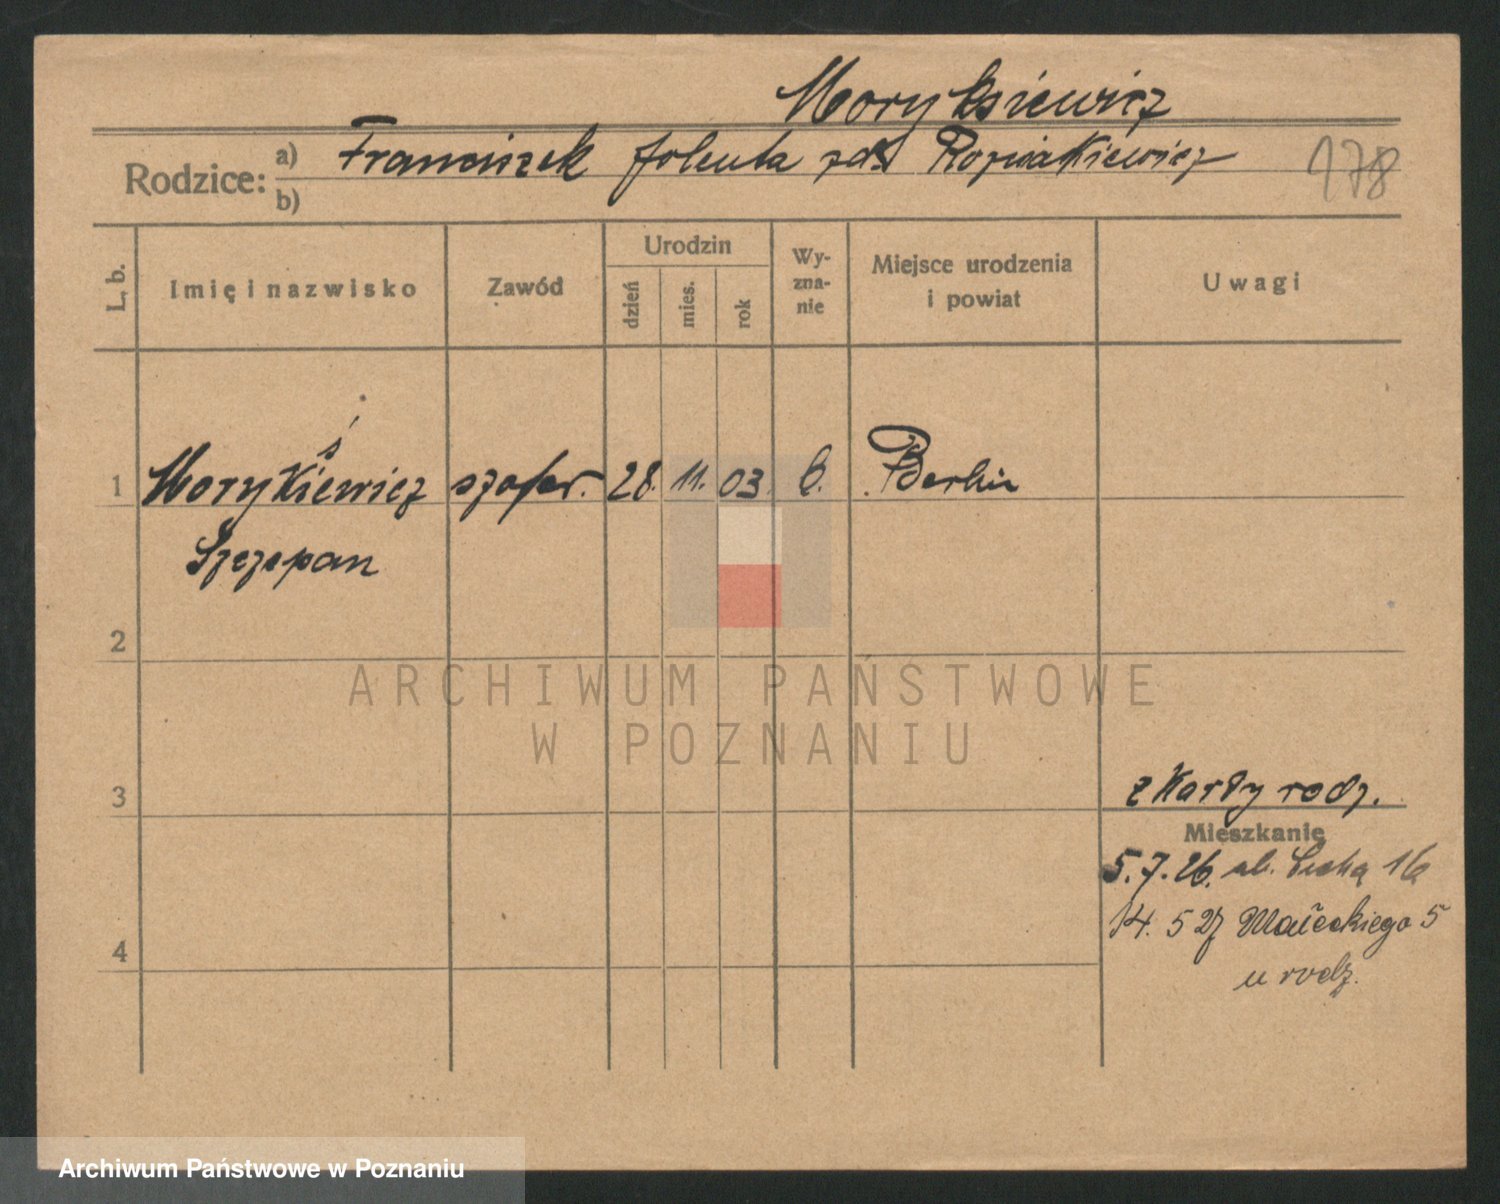 Moryksiewicz
Rodzice: a) Franciszek Jolenta zds Rozwiakiewicz
b)
178
L. b.
Imię i nazwisko
Zawód
Urodzin
dzień
mies.
rok
Wy-
zna-
nie
Miejsce urodzenia
i powiat
Uwagi
ś
1 Morykiewicz szofer. 28. 11. 03. Berlin
Szczepan
2
ARCHIWUM PAŃSTWOWE
W POZNANIU
3
z Karty rodz.
Mieszkanie
5.7.26. ul. Cicha 16
14. 5 27 Małeckiego 5
4
u rodz.
Archiwum Państwowe w Poznaniu